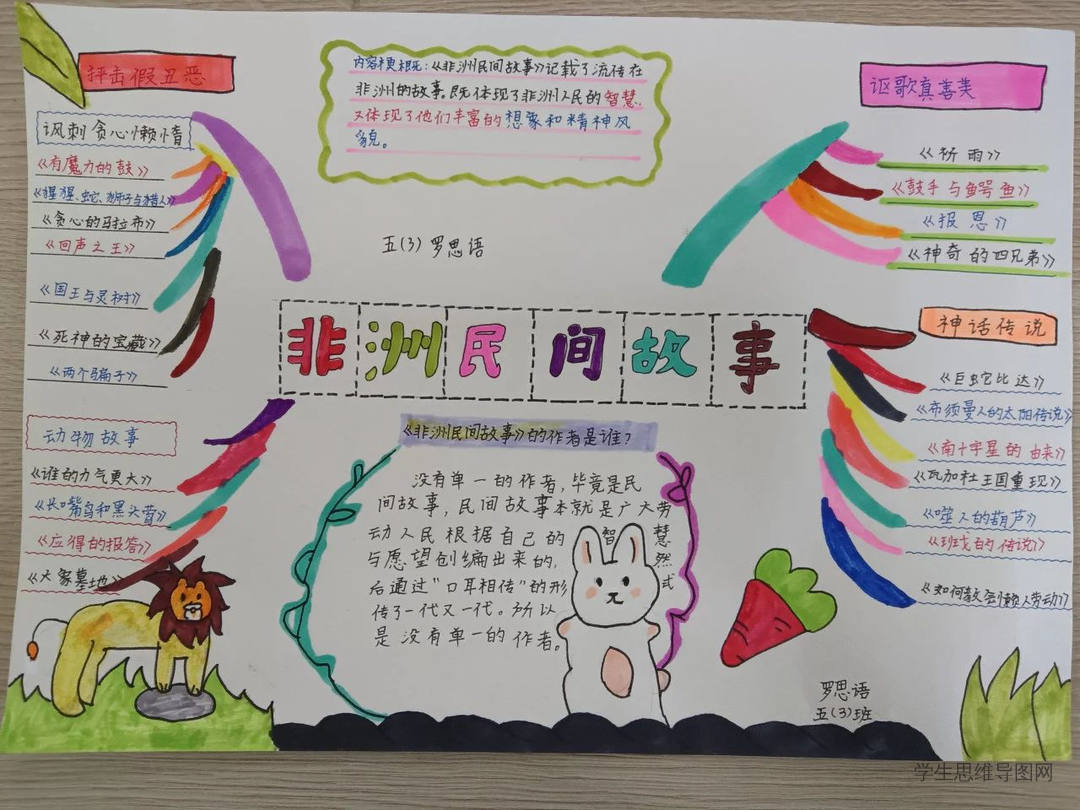 抨击假丑恶
讽刺贪心懒惰
《有魔力的鼓》
《猩猩、蛇、狮子与猎人》
《贪心的马拉布》
《回声之王》
《国王与灵树》
《死神的宝藏》
《两个骗子》
动物故事
《谁的力气更大》
《长嘴鸟和黑犬营》
《应得的报答》
《大象墓地》
内容梗概:《非洲民间故事》记载了流传在
非洲的故事,既体现了非洲人民的智慧,
又体现了他们丰富的想象和精神风
貌。
五(3) 罗思语
非洲民间故事
《非洲民间故事》的作者是谁?
没有单一的作者,毕竟是民
间故事,民间故事本就是广大劳
动人民根据自己的智慧
与愿望创编出来的,然
后通过"口耳相传"的形式
传了一代又一代。所以
是没有单一的作者。
讴歌真善美
《祈雨》
《鼓手与鳄鱼》
《报恩》
《神奇的四兄弟》
神话传说
《巨蛇比达》
《布须曼人的太阳传说》
《南十字星的由来》
《瓦加杜王国重现》
《噬人的葫芦》
《如何教会懒人劳动》
罗思语
五(3)班
学生思维导图网